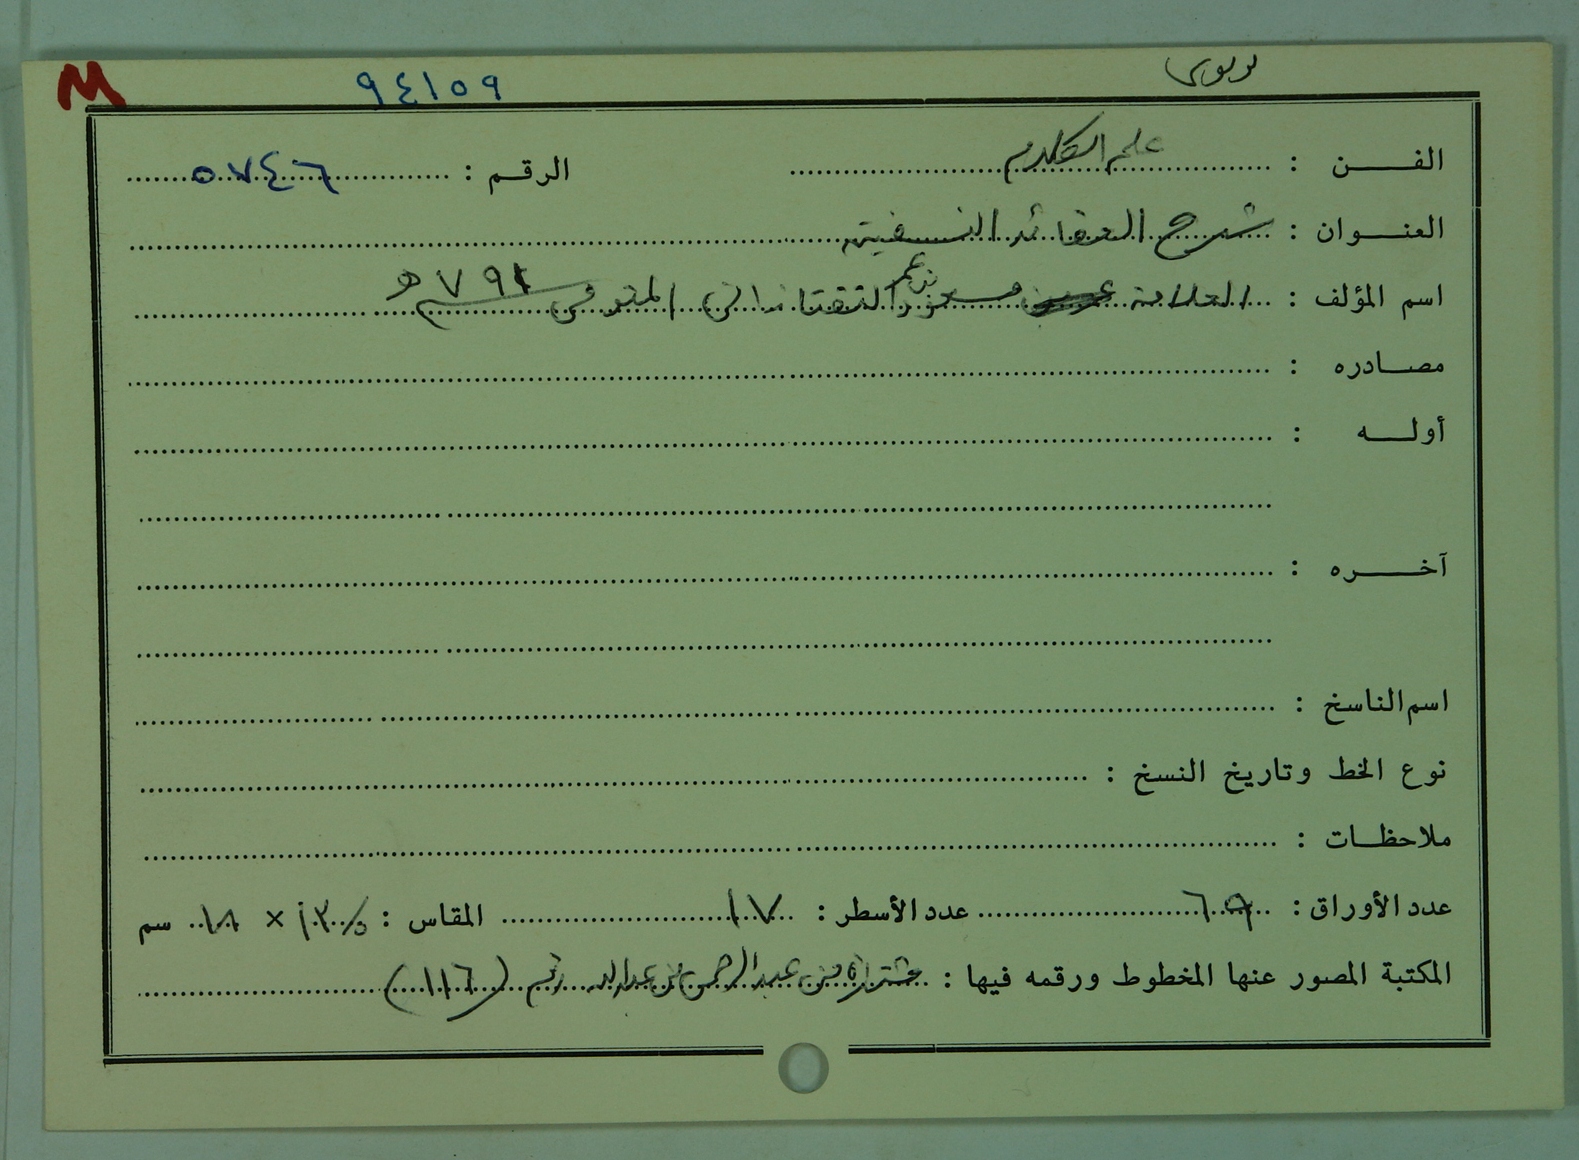 M ٩٤١٥٩
الفن : علم الكلام الرقم : ٥٧٤٦
العنوان : شرح العقائد النسفية
اسم المؤلف : العلامة مسعود بن عمر التفتازاني المتوفى ٧٩١ هـ
مصادره :
أوله :
آخره :
اسم الناسخ :
نوع الخط وتاريخ النسخ :
ملاحظات :
عدد الأوراق : ٦٩ عدد الأسطر : ١٧ المقاس : × ١٨ سم
المكتبة المصور عنها المخطوط ورقمه فيها : مشتراة من عبد الرحمن بن عبد الله رقم (١١٦)